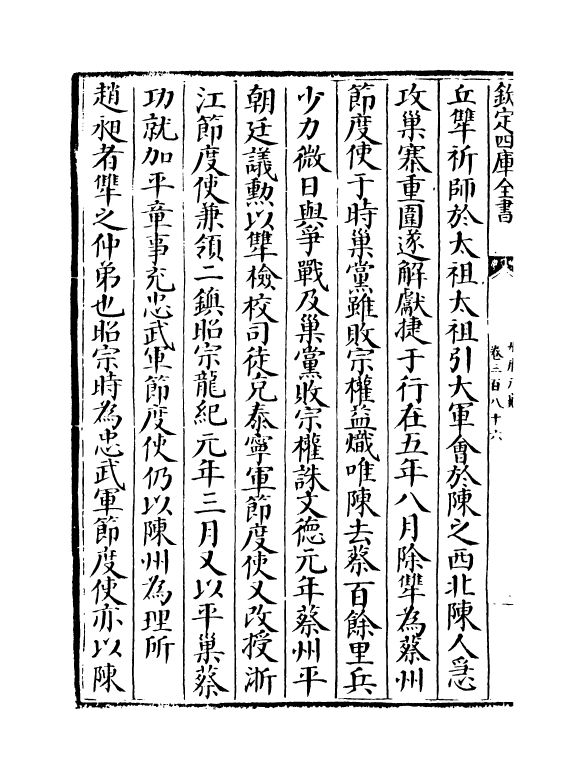 欽定四庫全書
卷三百八十六
丘犨祈師於太祖太祖引大軍會於陳之西北陳人忿
攻巢寨重圍遂解獻捷于行在五年八月除犨為蔡州
節度使于時巢黨雖敗宗權益熾唯陳去蔡百餘里兵
少力微日與爭戰及巢黨敗宗權誅文德元年蔡州平
朝廷議勲以犨檢校司徒兄泰寧軍節度使又改授浙
江節度使兼領二鎮昭宗龍紀元年三月又以平巢蔡
功就加平章事充忠武軍節度使仍以陳州為理所
趙昶者犨之仲弟也昭宗時為忠武軍節度使亦以陳